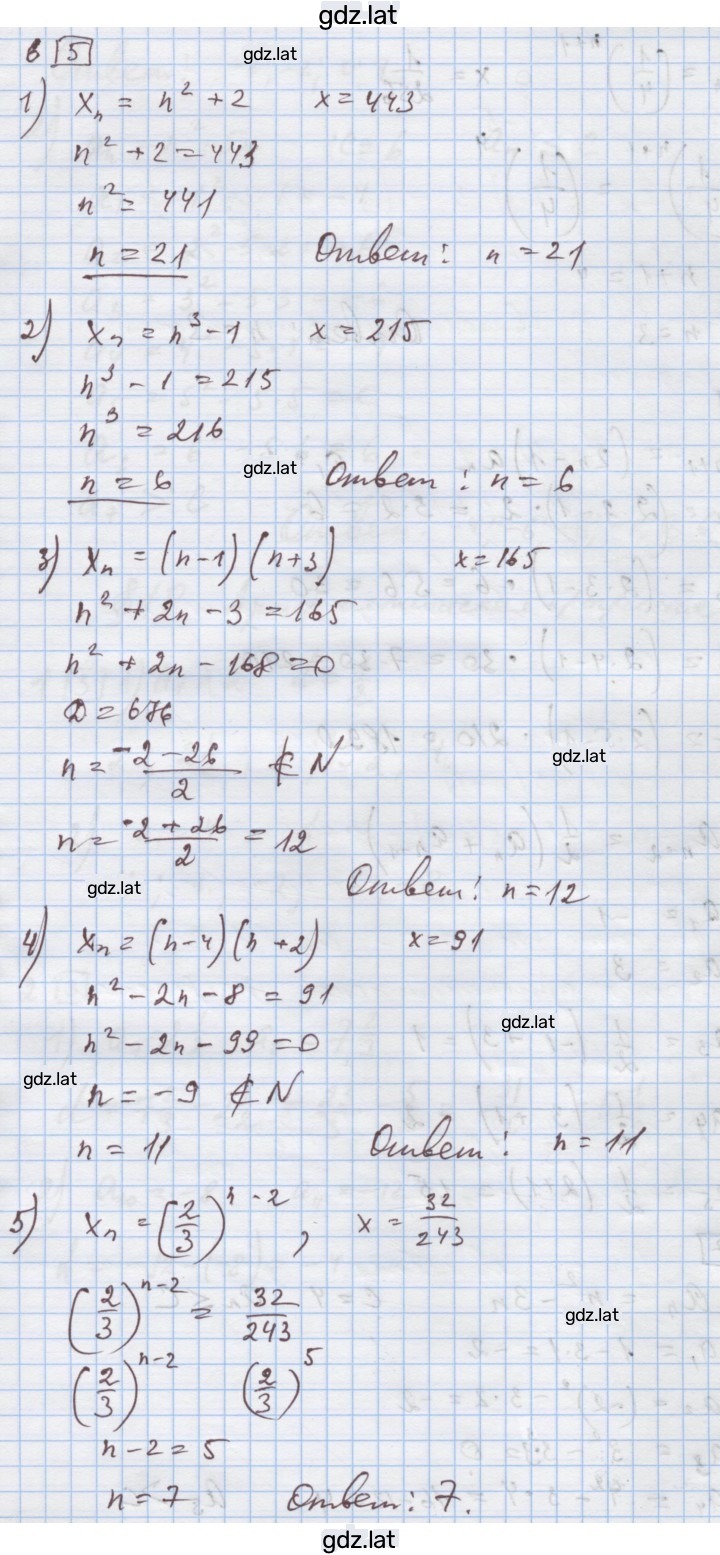 gdz.lat
в 5
gdz.lat
1) xₙ = n² + 2 x = 443
n² + 2 = 443
n² = 441
n = 21 Ответ: n = 21
2) xₙ = n³ - 1 x = 215
n³ - 1 = 215
n³ = 216
gdz.lat
n = 6 Ответ: n = 6
3) xₙ = (n-1)(n+3) x = 165
n² + 2n - 3 = 165
n² + 2n - 168 = 0
D = 676
n = (-2 - 26)/2 ∉ N
gdz.lat
n = (-2 + 26)/2 = 12
gdz.lat
Ответ: n = 12
4) xₙ = (n-4)(n+2) x = 91
n² - 2n - 8 = 91
gdz.lat
n² - 2n - 99 = 0
gdz.lat
n = -9 ∉ N
n = 11 Ответ: n = 11
5) xₙ = (2/3)ⁿ⁻², x = 32/243
(2/3)ⁿ⁻² = 32/243
gdz.lat
(2/3)ⁿ⁻² (2/3)⁵
n - 2 = 5
n = 7 Ответ: 7.
gdz.lat